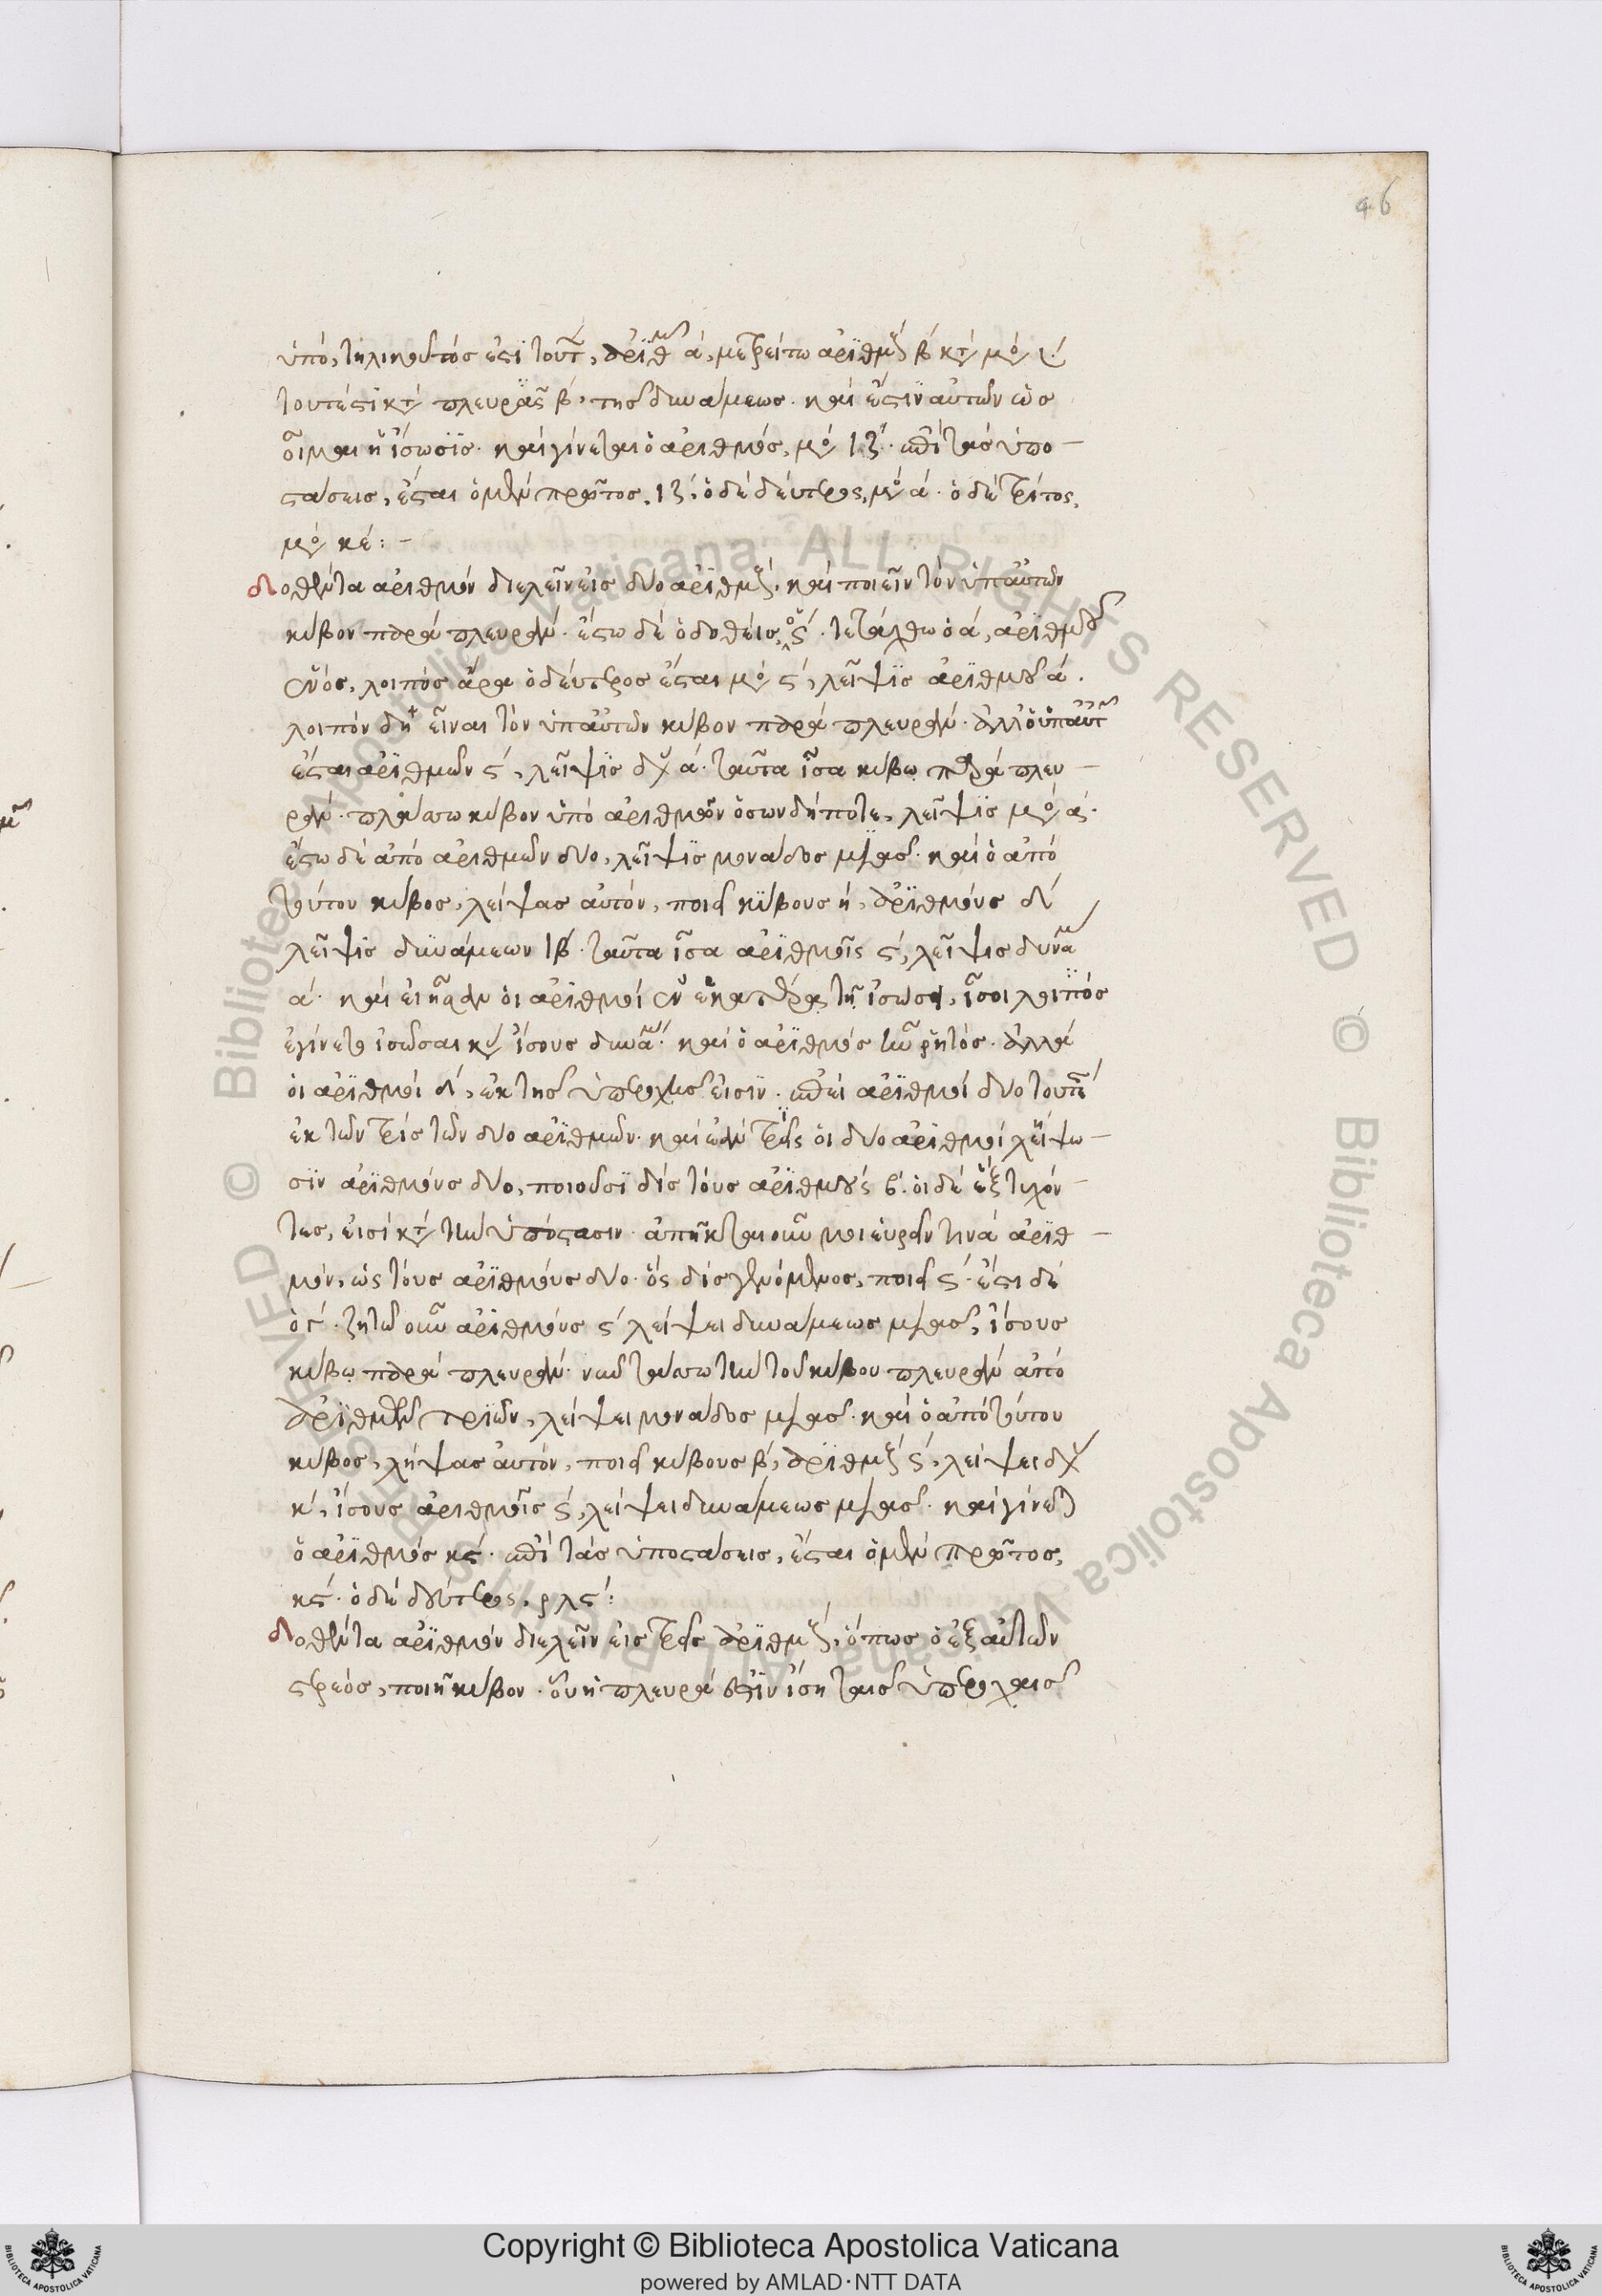 46
ὑπό, τηλικοῦτός ἐστι τουτ, ἀριθμ ά, μετρείτω ἀριθμούς β κτ μο ί
τουτέστι κτ πλευρὰς β, τῆς δυνάμεως. καὶ ἔστιν αὐτῶν ὡς
οἶμαι ἡ ἴσωσις. καὶ γίνεται ὁ ἀριθμός, μο ιζ. ἐπὶ τὰς ὑπο-
στάσεις, ἔσται ὁ μὲν πρῶτος, ιζ, ὁ δὲ δεύτερος, μο ά. ὁ δὲ τρίτος,
μο κε:-
Δοθέντα ἀριθμόν διελεῖν εἰς δύο ἀριθμούς. καὶ ποιεῖν τὸν ὑπ' αὐτῶν
κύβον παρὰ πλευράν. ἔστω δὲ ὁ δοθείς, ὁ ς. τετάχθω ὁ ά, ἀριθμοῦ
ἑνός, λοιπὸς ἄρα ὁ δεύτερος ἔσται μο ς, λεῖψις ἀριθμοῦ ά.
λοιπόν δὴ εἶναι τὸν ὑπ' αὐτῶν κύβον παρὰ πλευράν. ἀλλ' ὁ ὑπ' αὐτ
ἔσται ἀριθμῶν ς, λεῖψις δυ ά. ταῦτα ἴσα κύβῳ παρὰ πλευ-
ράν. πλάσσω κύβον ὑπὸ ἀριθμῶν ὅσων δήποτε, λεῖψις μο ά.
ἔστω δὲ ἀπὸ ἀριθμῶν δύο, λεῖψις μονάδος μιᾶς. καὶ ὁ ἀπὸ
τούτου κύβος, λείψας αὐτόν, ποιεῖ κύβους ή, ἀριθμούς δ
λεῖψις δυνάμεων ιβ. ταῦτα ἴσα ἀριθμοῖς ς, λεῖψις δυνάμ
ά. καὶ εἰ ἦσαν οἱ ἀριθμοί ἐν ἑκατέρᾳ τῇ ἰσώσει, ἴσοι λοιπός
ἐγίνετο ἰσῶσαι κυ ἴσους δυνάμ. καὶ ὁ ἀριθμός ἦν ῥητός. ἀλλὰ
οἱ ἀριθμοί δ, ἐκ τῆς ὑπεροχῆς εἰσίν. ἐπεὶ ἀριθμοί δύο τουτέ
ἐκ τῶν τρὶς τῶν δύο ἀριθμῶν. καὶ ἐὰν τρεῖς οἱ δύο ἀριθμοί λείψω-
σιν ἀριθμούς δύο, ποιοῦσι δὶς τοὺς ἀριθμούς β. οἱ δὲ ἓξ τυχόν-
τες, εἰσὶ κτ τὴν ὑπόστασιν. ἀπῆκται οὖν μοι εὑρεῖν τινὰ ἀριθ-
μόν, ὡς τοὺς ἀριθμούς δύο. ὃς δὶς γενόμενος, ποιεῖ ς. ἔστι δὲ
ὁ γ. ζητῶ οὖν ἀριθμούς ς λείψει δυνάμεως μιᾶς, ἴσους
κύβῳ παρὰ πλευράν. νῦν τάσσω τὴν τοῦ κύβου πλευρὰν ἀπὸ
ἀριθμῶν τριῶν, λείψει μονάδος μιᾶς. καὶ ὁ ἀπὸ τούτου
κύβος, λήψας αὐτόν, ποιεῖ κύβους β, ἀριθμούς ς, λείψει δυ
κ, ἴσους ἀριθμοῖς ς, λείψει δυνάμεως μιᾶς. καὶ γίνεται
ὁ ἀριθμός κς. ἐπὶ τὰς ὑποστάσεις, ἔσται ὁ μὲν πρῶτος,
κς. ὁ δὲ δεύτερος, ρλς:
Δοθέντα ἀριθμόν διελεῖν εἰς τρεῖς ἀριθμούς, ὅπως ὁ ἐξ αὐτῶν
στερεός, ποιῇ κύβον. οὗ ἡ πλευρά ἐστιν ἴση ταῖς ὑπεροχαῖς
Copyright © Biblioteca Apostolica Vaticana
powered by AMLAD·NTT DATA